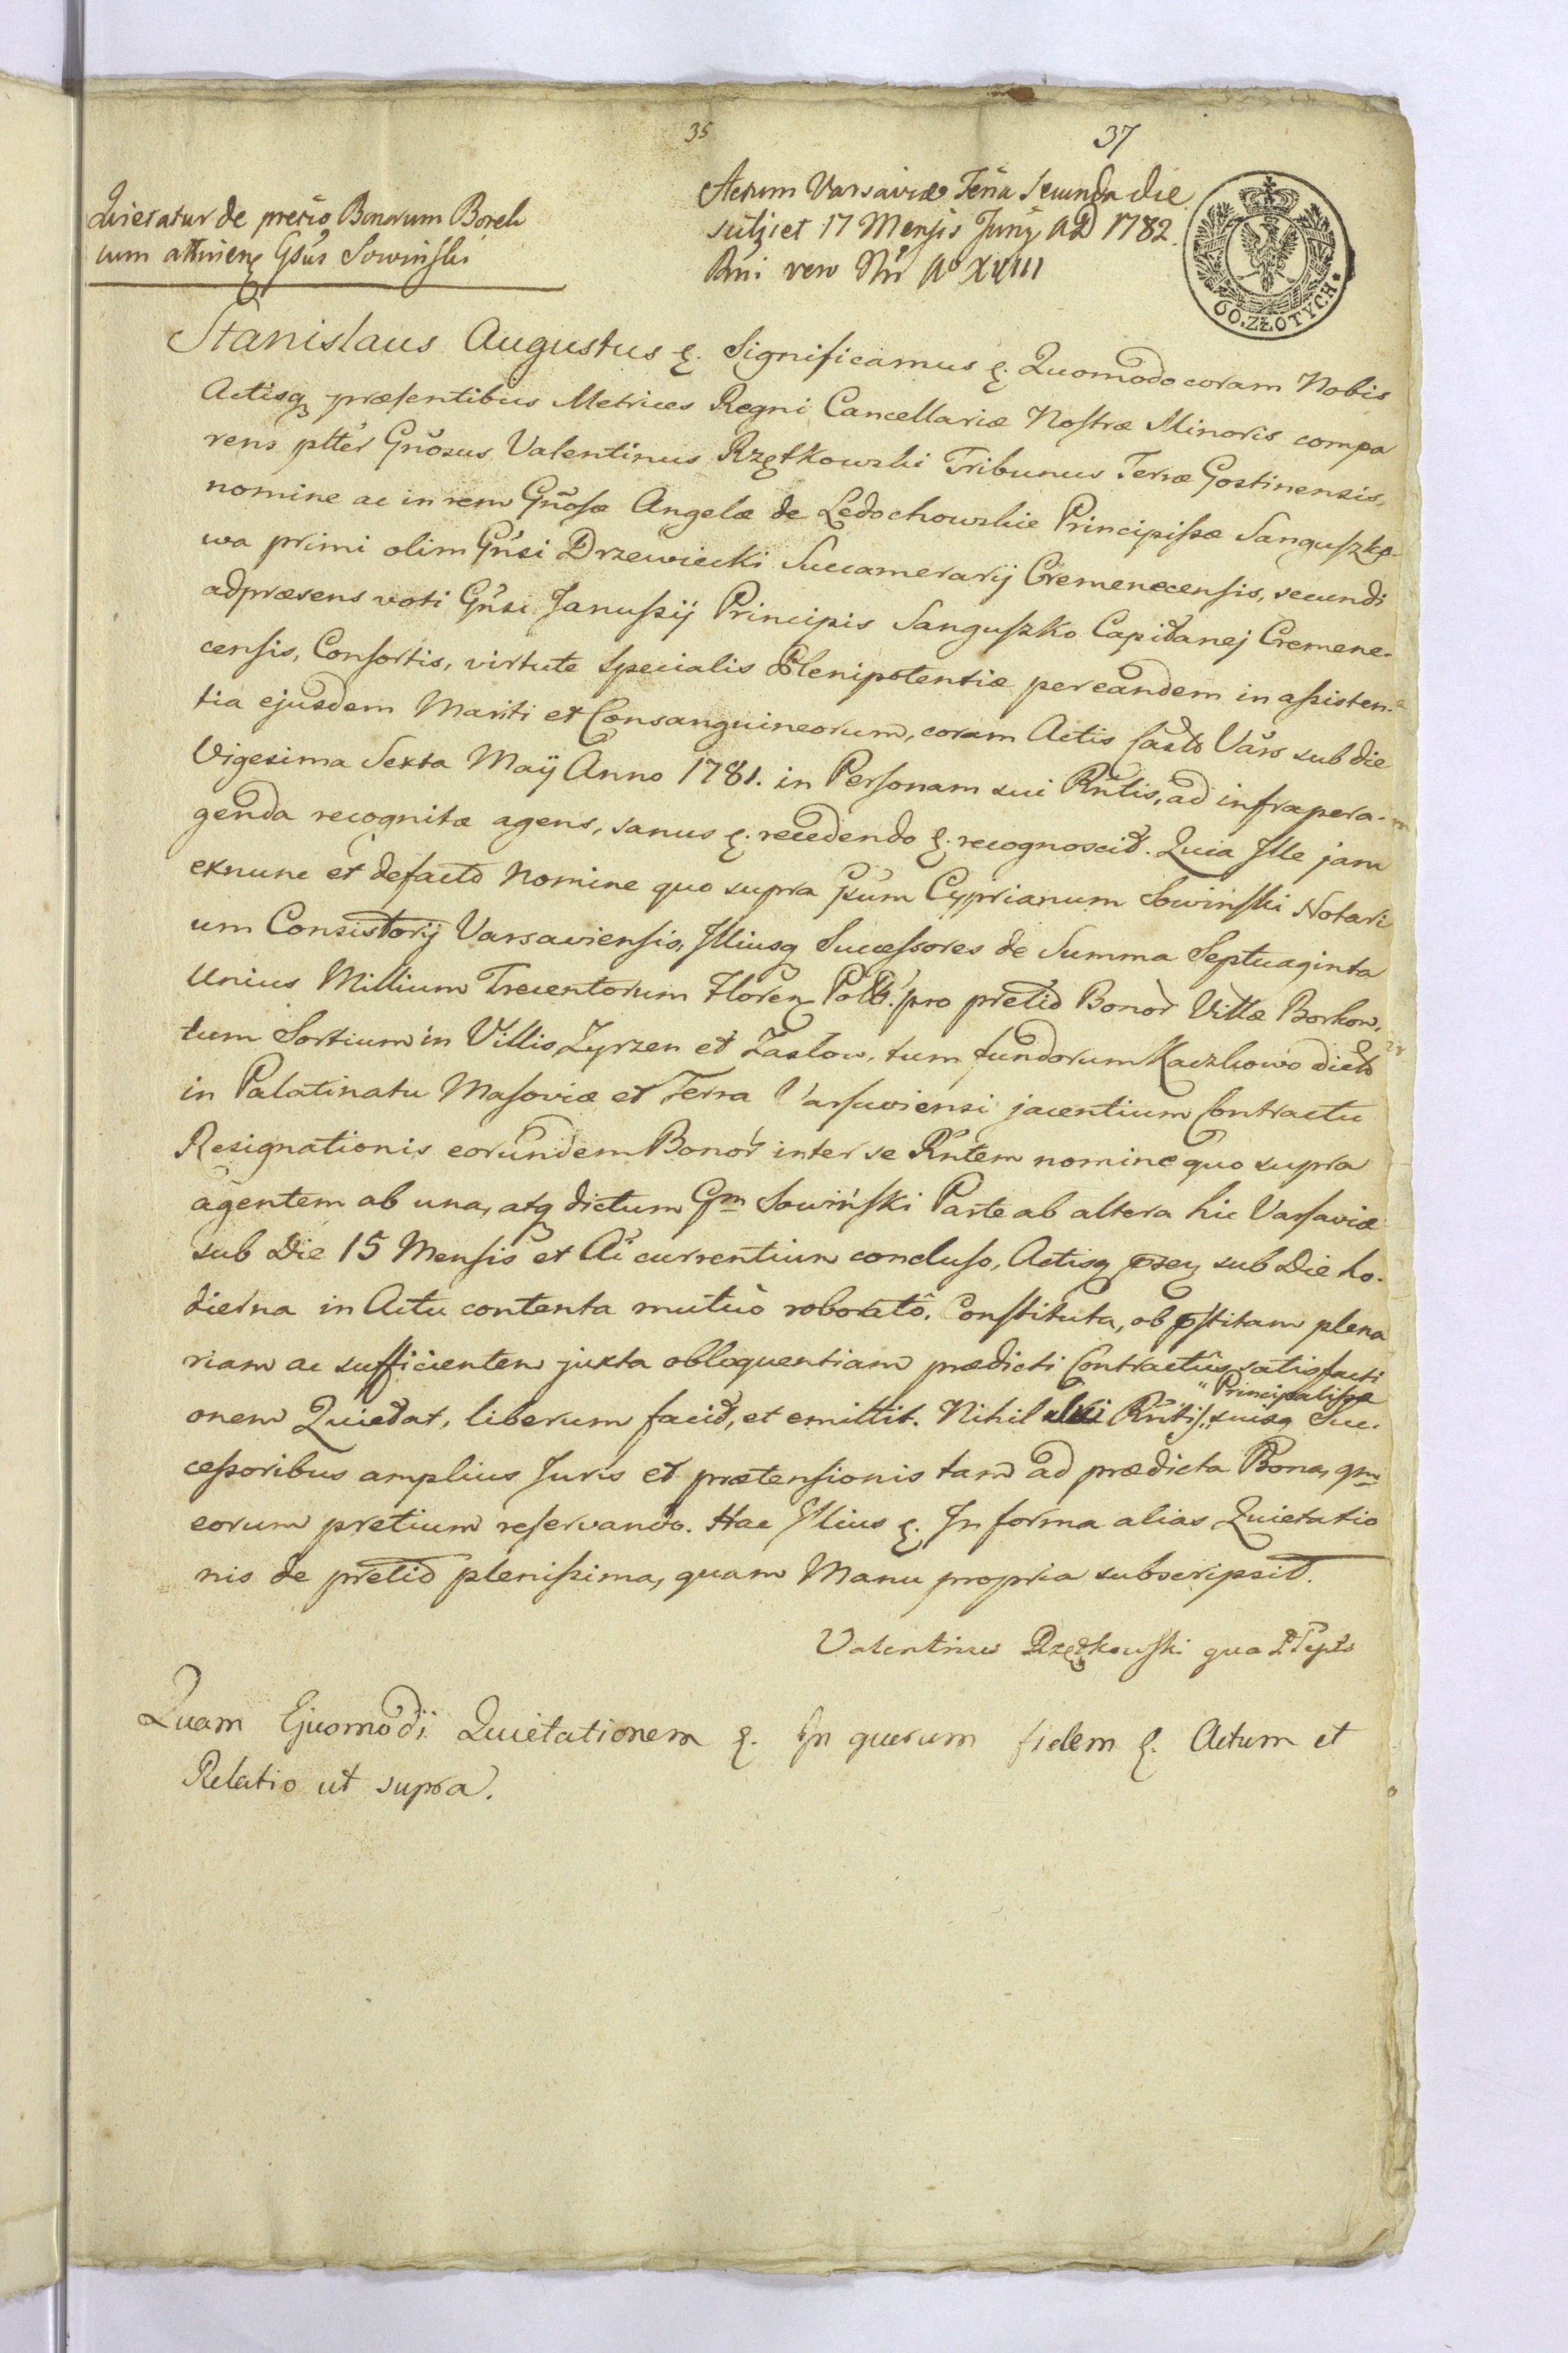 35
37
Quietatur de precio Bonorum Borek
cum attinen Gsus Sowinski
Actum Varsaviæ Feria Secunda die
scilicet 17 Mensis Junij AD 1782.
Rni vero Nri Ao XVIII
60. ZŁOTYCH.
Stanislaus Augustus &. Significamus &. Quomodo coram Nobis
Actisq præsentibus Metrices Regni Cancellariæ Nostræ Minoris compa
rens plter Gnosus Valentinus Rzętkowski Tribunus Terræ Gostinensis,
nomine ac in rem Gnosæ Angelæ de Ledochowskie Principissæ Sanguszko
wa primi olim Gnsi Drzewiecki Succamerarij Cremenecensis, secundi
adpræsens voti Gnsi Janussij Principis Sanguszko Capitanej Cremene-
censis, Consortis, virtute specialis Plenipotentiæ per eandem in assisten-
tia ejusdem Mariti et Consanguineorum, coram Actis Casts Vars sub die
Vigesima Sexta Maij Anno 1781. in Personam sui Rntis, ad infra pera-
genda recognitæ agens, sanus &. recedendo &. recognoscit. Quia Ille jam
exnunc et defacto Nomine quo supra Gsum Cyprianum Sowiński Notari
um Consistorij Varsaviensis, Illiusq Successores de Summa Septuaginta
Unius Millium Trecentorum Floren Poll. pro pretio Bonor Villæ Borkow,
tum Sortium in Villis Zyrzen et Zastow, tum fundorum Kaczkowo dicto
in Palatinatu Masoviæ et Terra Varsaviensi jacentium Contractu
Resignationis eorundem Bonor inter se Rntem nomine quo supra
agentem ab una, atq dictum Gm Sowiński Parte ab altera hic Varsaviæ
sub Die 15 Mensis et Ai currentium concluso, Actisq psen sub Die ho-
dierna in Actu contenta mutuò roborato. Constituta, ob pstitam plena
riam ac sufficientem juxta obloquentiam prædicti Contractûs satisfacti
onem Quietat, liberum facit, et emittit. Nihil Sui Rntis "Principalissæ suisq Suc-
cessoribus amplius Juris et prætensionis tam ad prædicta Bona, qm
eorum pretium reservando. Hac Illius &. In forma alias Quietatio
nis de pretio plenissima, quam Manu propria subscripsit.
Valentinus Rzętkowski qua Plepts
Quam Ejusmodi Quietationem &. In quorum fidem &. Actum et
Relatio ut supra.